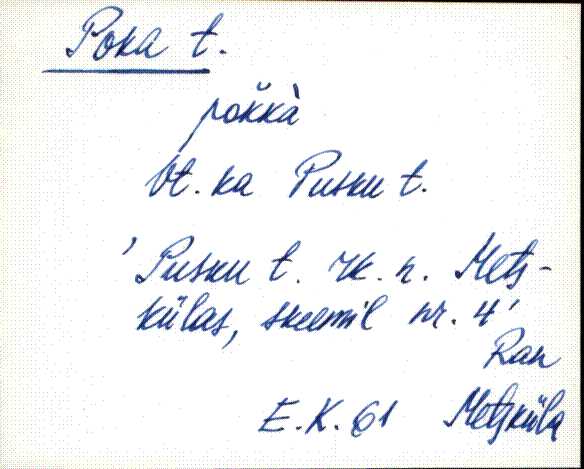 Poka t.
pok̆kà
Vt. ka Pusku t.
'Pusku t. rk. n. Mets-
külas, skeemil nr. 4'
Ran
E.K. 61 Metsküla